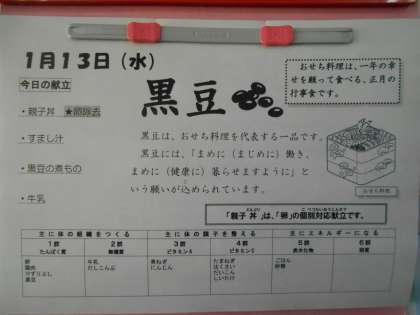 1月13日(水)
今日の献立
・親子丼 ★卵除去
・すまし汁
・黒豆の煮もの
・牛乳
黒豆
おせち料理は、一年の幸
せを願って食べる、正月の
行事食です。
黒豆は、おせち料理を代表する一品です。
黒豆には、「まめに(まじめに)働き、
まめに(健康に)暮らせますように」と
いう願いが込められています。
おせち料理
「親子丼」は、「卵」の個別対応献立です。
主に体の組織をつくる 主に体の調子を整える 主にエネルギーになる
1群 2群 3群 4群 5群 6群
たんぱく質 無機質 ビタミンA ビタミンC 炭水化物 脂質
卵 牛乳 にんじん たまねぎ ごはん
鶏肉 だしこんぶ はくさい 砂糖
けずりぶし だいこん
黒豆 しいたけ